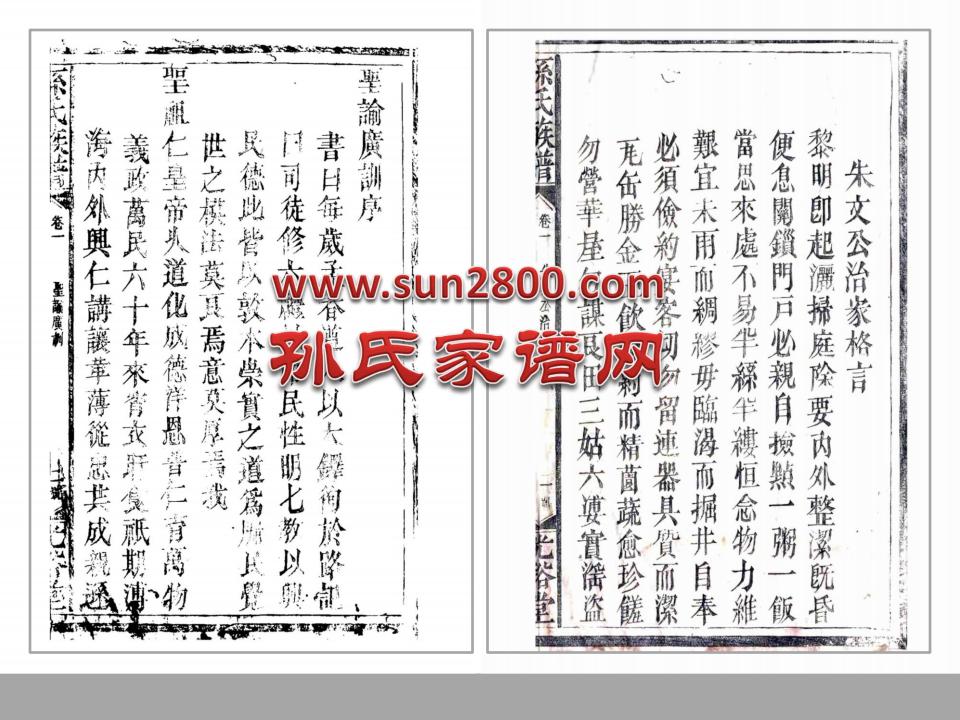 朱文公治家格言
黎明即起灑掃庭除要內外整潔既昏
便息關鎖門戶必親自撿點一粥一飯
當思來處不易半絲半縷恒念物力維
艱宜未雨而綢繆毋臨渴而掘井自奉
必須儉約宴客切勿留連器具質而潔
瓦缶勝金 飲 而精園蔬愈珍饈
勿營華屋勿謀良田三姑六婆實淫盜
孫氏族譜
卷一
光裕堂
聖諭廣訓序
書曰每歲孟春遒 以木鐸徇於路記
曰司徒修六禮 民性明七教以興
民德此皆以敦本崇實之道為牖民覺
世之模法莫良焉意莫厚焉我
聖祖仁皇帝久道化成德洋恩普仁育萬物
義政萬民六十年來宵衣旰食祇期薄
海內外興仁講讓革薄從忠共成親遜
孫氏族譜
卷一
聖諭廣訓
www.sun2800.com
孙氏家谱网